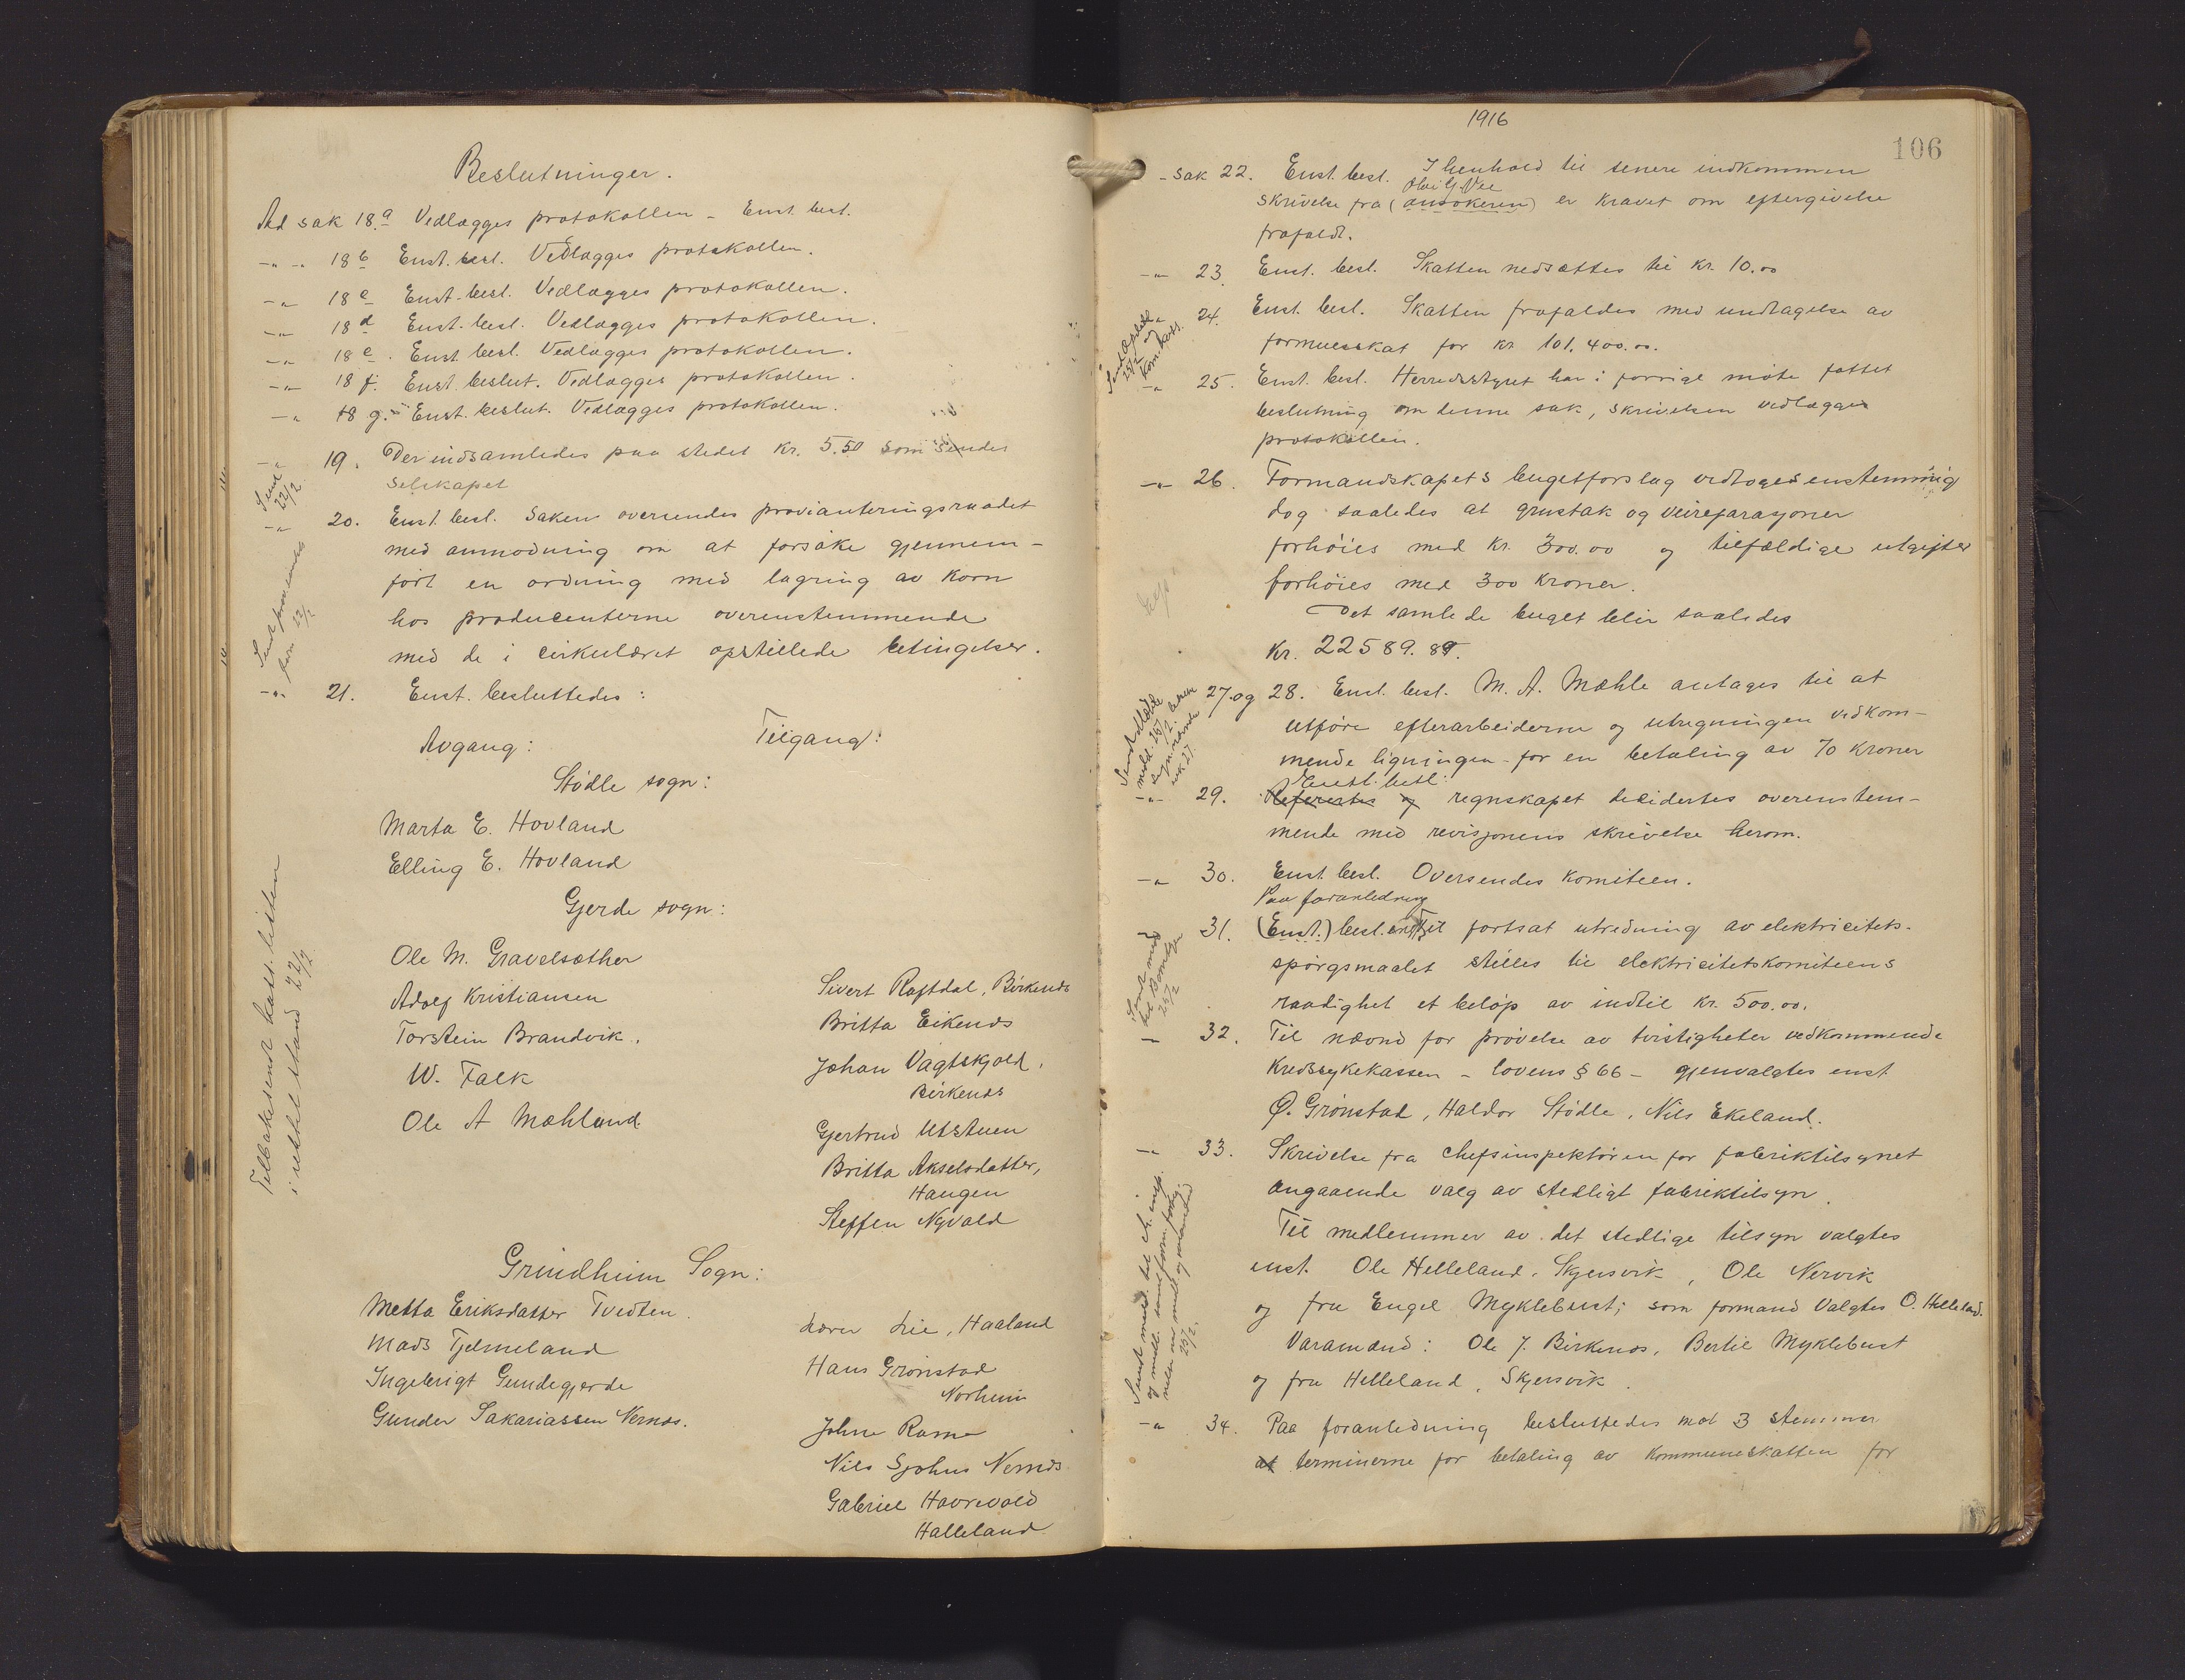 Beslutninger.
Ad sak 18a Vedlægges protokollen - Enst. besl.
-"- -"- 18b Enst. besl. Vedlægges protokollen.
-"- 18c Enst. besl. Vedlægges protokollen.
-"- 18d Enst. besl. Vedlægges protokollen.
-"- 18e. Enst. besl. Vedlægges protokollen.
-"- 18 f. Enst. beslut. Vedlægges protokollen.
-"- 18 g. Enst. beslut. Vedlægges protokollen.
-"- 19. Der indsamledes paa stedet kr. 5.50 som sendes
selskapet
Sendt
22/2
-"- 20. Enst. besl. Saken oversendes provianteringsraadet
med anmodning om at forsøke gjennem-
ført en ordning med lagring av korn
hos producenterne overenstemmende
med de i cirkulæret opstillede betingelser.
-"- 21. Enst. besluttedes:
Avgang: Tilgang:
Stødle sogn:
Marta E. Hovland
Elling E. Hovland
Gjerde sogn:
Ole M. Gravelsæther
Adolf Kristiansen
Torstein Brandvik.
W. Falk
Ole A Mæhland
Sivert Raftdal, Birkenæs
Britta Eikenæs
Johan Vagtskjold,
Birkenæs
Gjertrud Utstuen
Britta Akselsdatter,
Haugen
Steffen Nyvold
Tilbakesendt kass. listen
i utkl. stand 22/2
Grindheim Sogn:
Metta Eriksdatter Tvedten.
Mads Tjelmeland
Ingebrigt Gundegjerde
Gunder Sakariassen Nernæs.
Lærer Lie, Haaland
Hans Grønstad
Norheim
Johne Rame
Nils Sjohus Nernæs
Gabriel Havrevold
Halleland
1916
106
- sak 22. Enst. besl. I henhold til senere indkommen
skrivelse fra (ansøkeren) er kravet om eftergivelse
frafaldt.
-"- 23. Enst. besl. Skatten nedsættes til kr. 10.00
-"- 24. Enst. besl. Skatten frafaldes med undtagelse av
formuesskat for kr 101.400.00.
-"- 25. Enst. besl. Herredsstyret har i forrige møte fattet
beslutning om denne sak, skrivelsen vedlægges
protokollen.
-"- 26. Formandskapets bugetforslag vedtoges enstemmig
dog saaledes at grustak og veireparasjoner
forhøies med kr. 300.00 og tilfældige utgifter
forhøies med 300 kroner.
Det samlede buget blir saaledes
Kr. 22589.89.
27 og 28. Enst. besl. M. A. Mæhle antages til at
utføre efterarbeiderne og utregningen vedkom-
mende ligningen for en betaling av 70 kroner
Enst. besl.
-"- 29. Refereertes og regnskapet decidertes overenstem-
mende med revisjonens skrivelse herom.
-"- 30. Enst. besl. Oversendes komiteen.
Paa foranledning
- 31. (Enst.) besl. enst. Til fortsat utredning av elektricitets-
spørgsmaalet stilles til elektricitetskomiteens
raadighet et beløp av indtil kr. 500.00.
- 32. Til nævnd for prøvelse av tvistigheter vedkommende
Kredssykekassen - lovens § 66 - gjenvalgtes enst.
Ø. Grønstad, Haldor Stødle, Nils Ekeland.
-"- 33. Skrivelse fra chefsinspektøren for fabriktilsynet
angaaende valg av stedligt fabriktilsyn.
Til medlemmer av det stedlige tilsyn valgtes
enst. Ole Helleland, Skjersvik, Ole Nervik
og fru Engel Myklebust; som formand valgtes O. Helleland.
Varamænd: Ole J. Birkenæs, Bertil Myklebust
og fru Helleland, Skjersvik.
-"- 34. Paa foranledning besluttedes mot 3 stemmer
at terminerne for betaling av kommuneskatten for